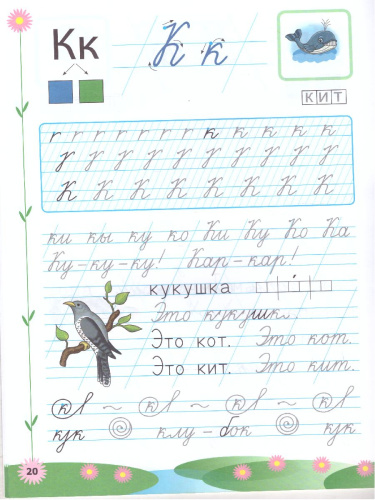 Кк К к
КИТ
г г г г г г г к к к к к
К К К К К К К К
ки кы ку ко Ки Ку Ко Ка
Ку-ку-ку! Кар-кар!
кукушка
Это
Это кот. Это кот.
Это кит. Это кит.
20